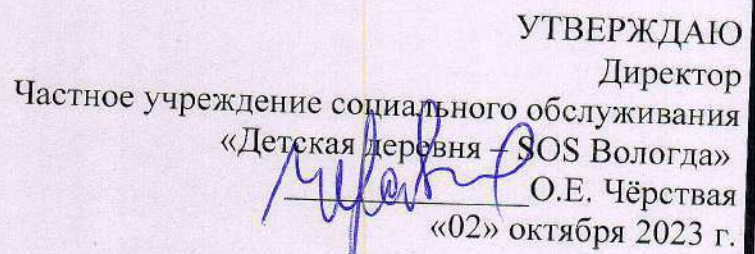 УТВЕРЖДАЮ
Директор
Частное учреждение социального обслуживания
«Детская деревня – SOS Вологда»
О.Е. Чёрствая
«02» октября 2023 г.